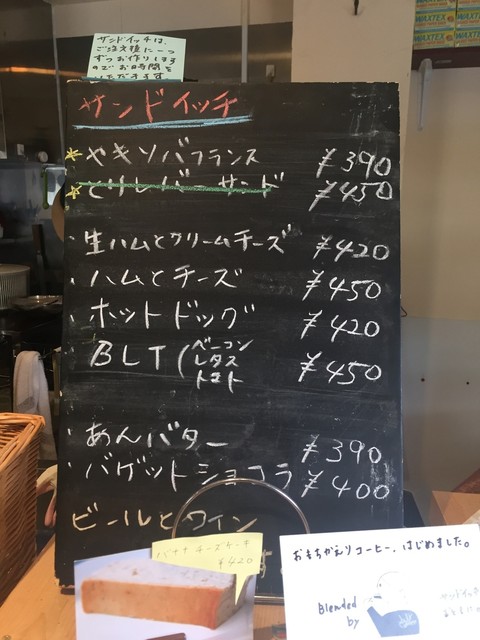 サンドイッチは、
ご注文後に一つ
ずつお作りします
のでお時間を
いただきます
WAXTEX
サンドイッチ
ヤキソバフランス ¥390
とりレバーサンド ¥450
生ハムとクリームチーズ ¥420
ハムとチーズ ¥450
ホットドッグ ¥420
BLT(ベーコン
レタス
トマト ¥450
あんバター ¥390
バゲットショコラ ¥400
ビールとワイン
バナナチーズケーキ
¥420
おもちかえりコーヒー、はじめました。
Blended
by